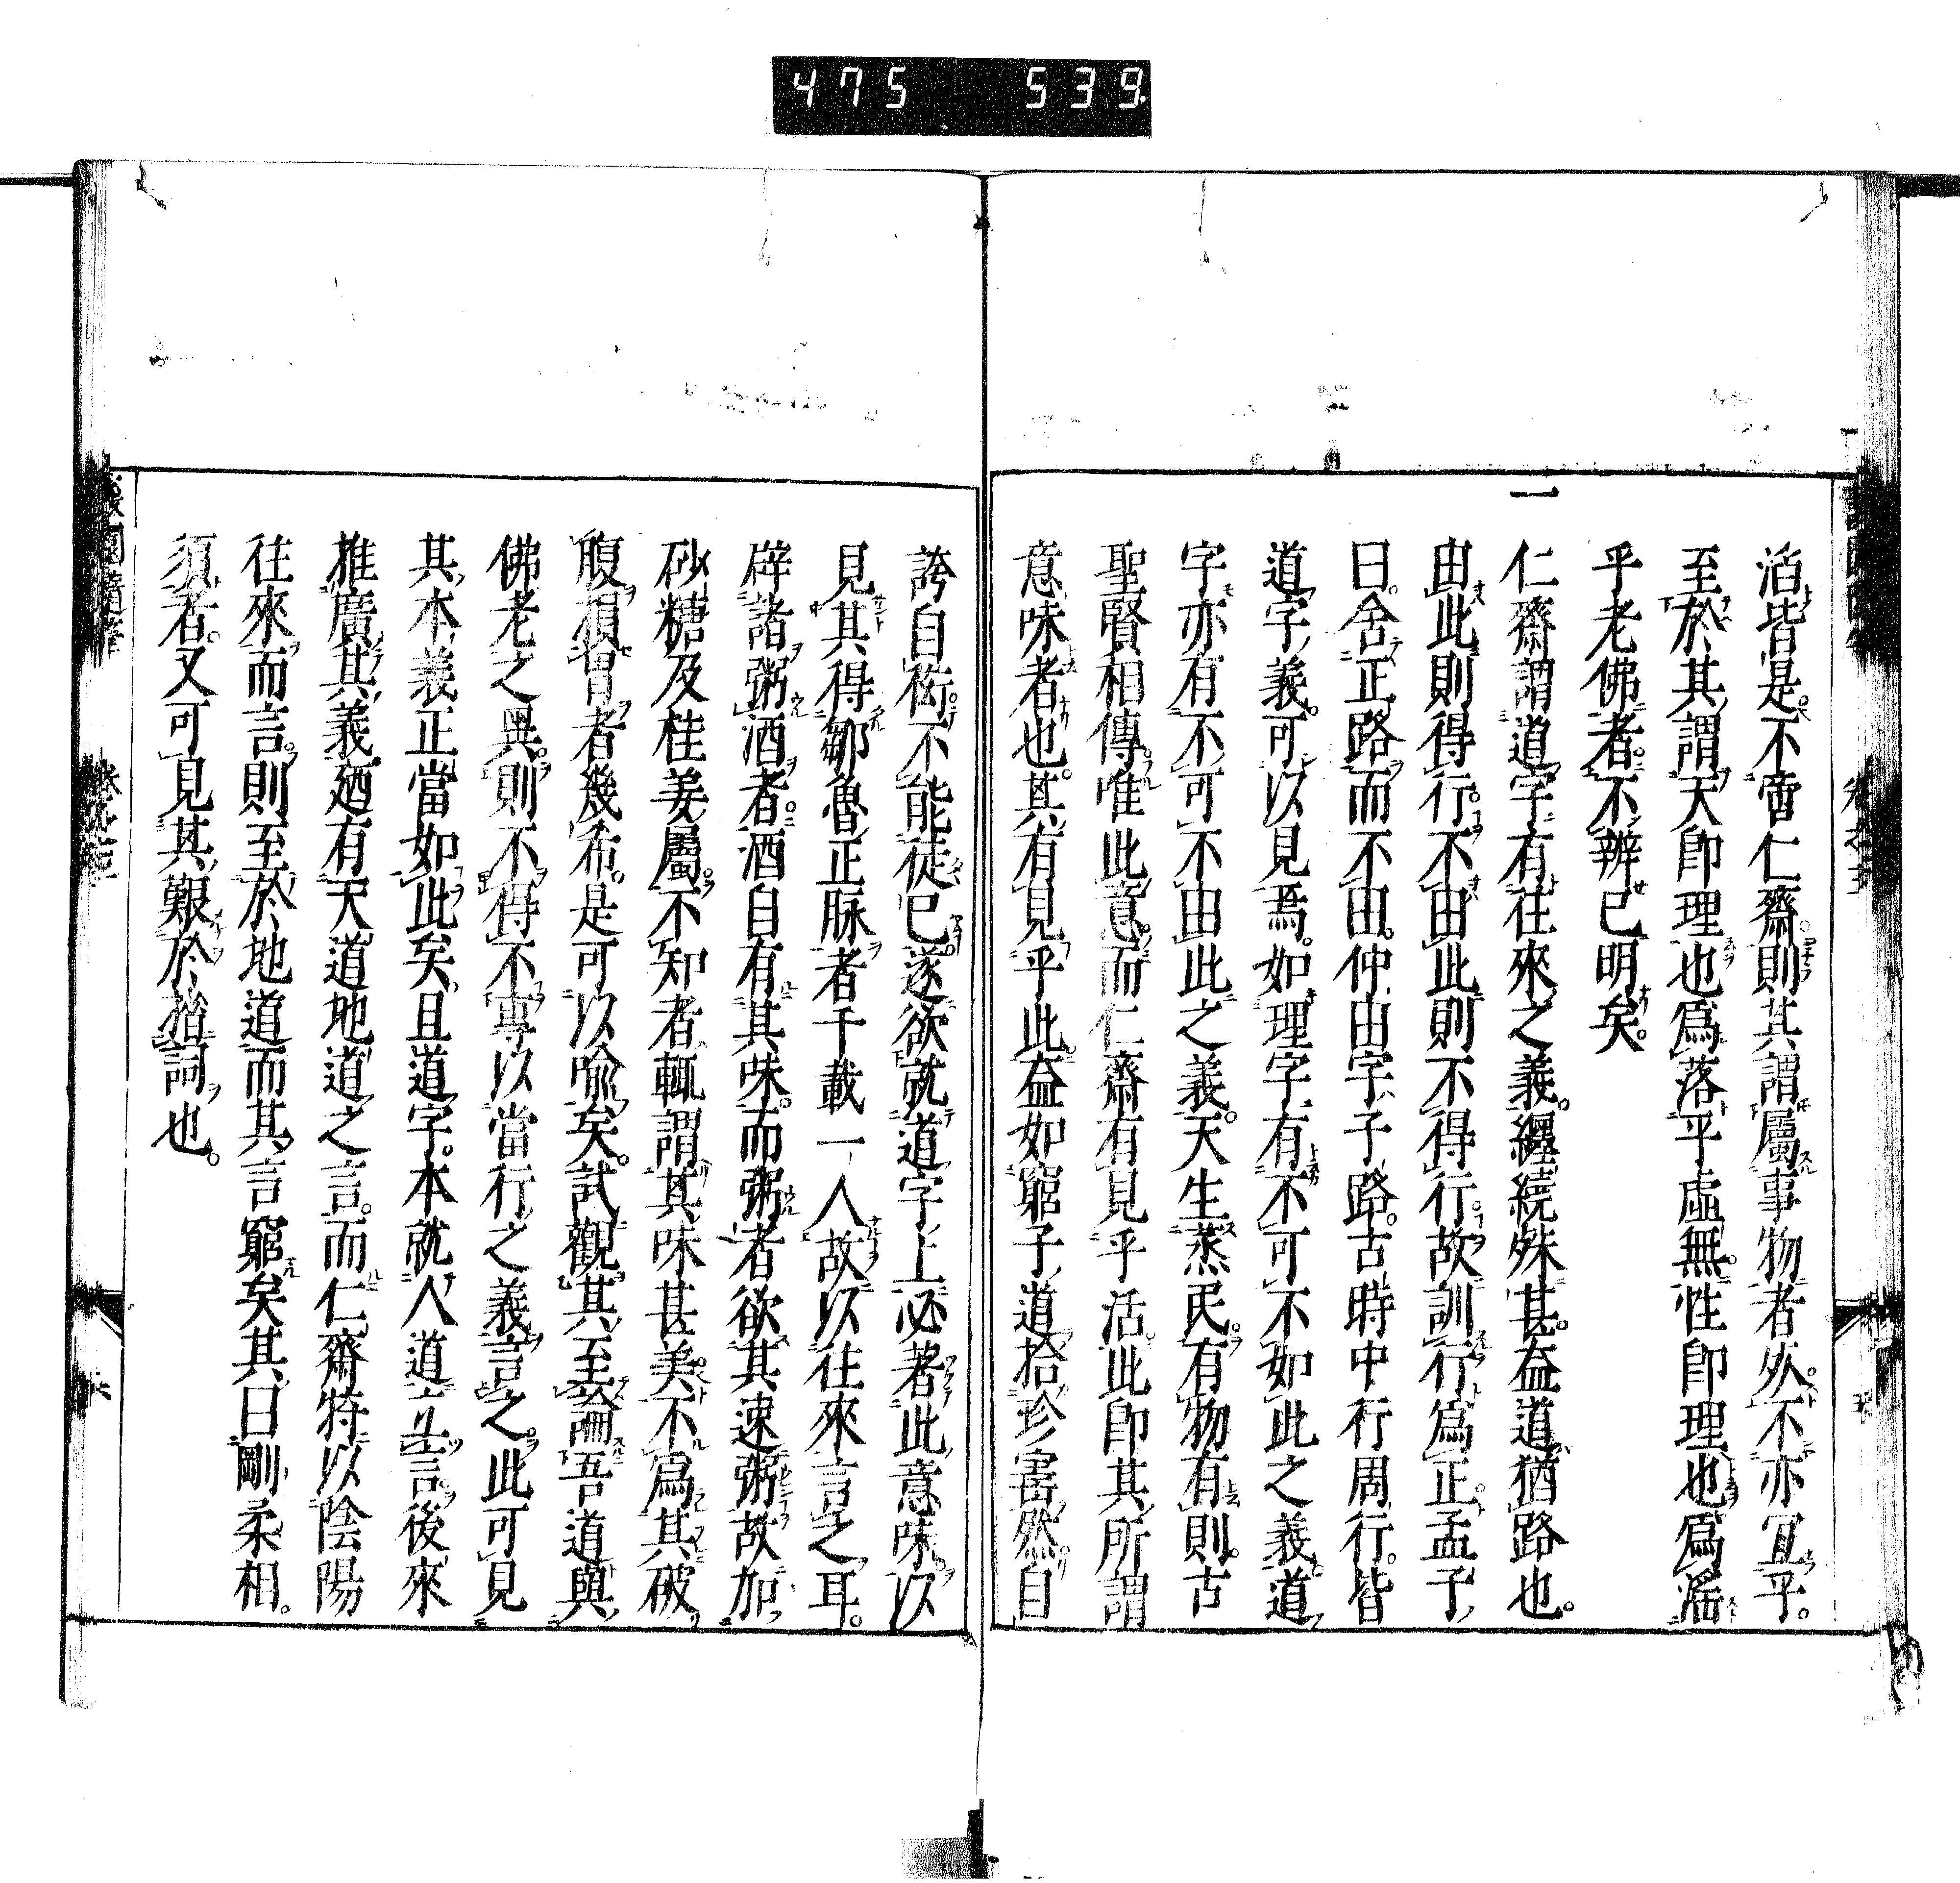 475 539
活皆是。不啻仁齋。則其謂屬事物者必。不亦冝乎。
至於其謂天卽理也爲落乎虛無。性卽理也爲滛
乎老佛者。不辨已明矣。
一仁齋謂道字有往來之義。纒繞殊甚。益道猶路也。
由此則得行。不由此則不得行。故訓行爲正。孟子
曰。舍正路而不由。仲由字子路。古時中行周行。皆
道字義。可以見焉。如理字。有不可不如此之義。道
字亦有不可不由此之義。天生蒸民。有物有則。古
聖賢相傳。唯此意。而仁齋有見乎活。此卽其所謂
意味者也。其有見乎此。益如窮子道拾珍寶然。自
誇自衒。不能徒已。遂欲就道字上必著此意味。以
見其得鄒魯正脉者千載一人。故以往來言之耳。
辟諸粥酒者。酒自有其味。而粥者欲其速粥。故加
砂糖及桂姜屬。不知者輒謂其味甚美。不爲其破
腹損胃者幾希。是可以喩矣。試觀其至論吾道與
佛老之異。則不得不專以當行之義言之。此可見
其本義正當如此矣。且道字。本就人道立言。後來
推廣其義。廼有天道地道之言。而仁齋特以陰陽
往來而言。則至於地道而其言窮矣。其曰剛柔相。
須者。又可見其艱於措詞也。